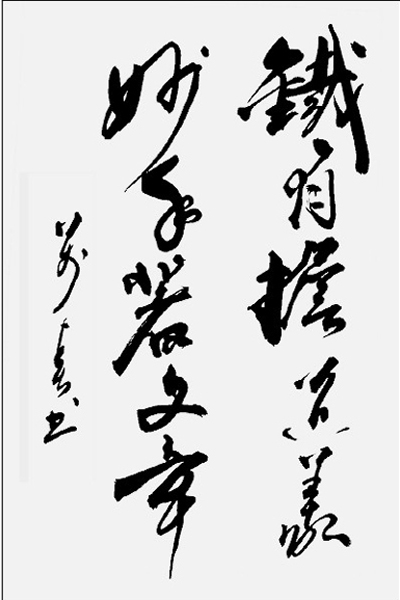 鐵肩擔道義
妙手著文章
书